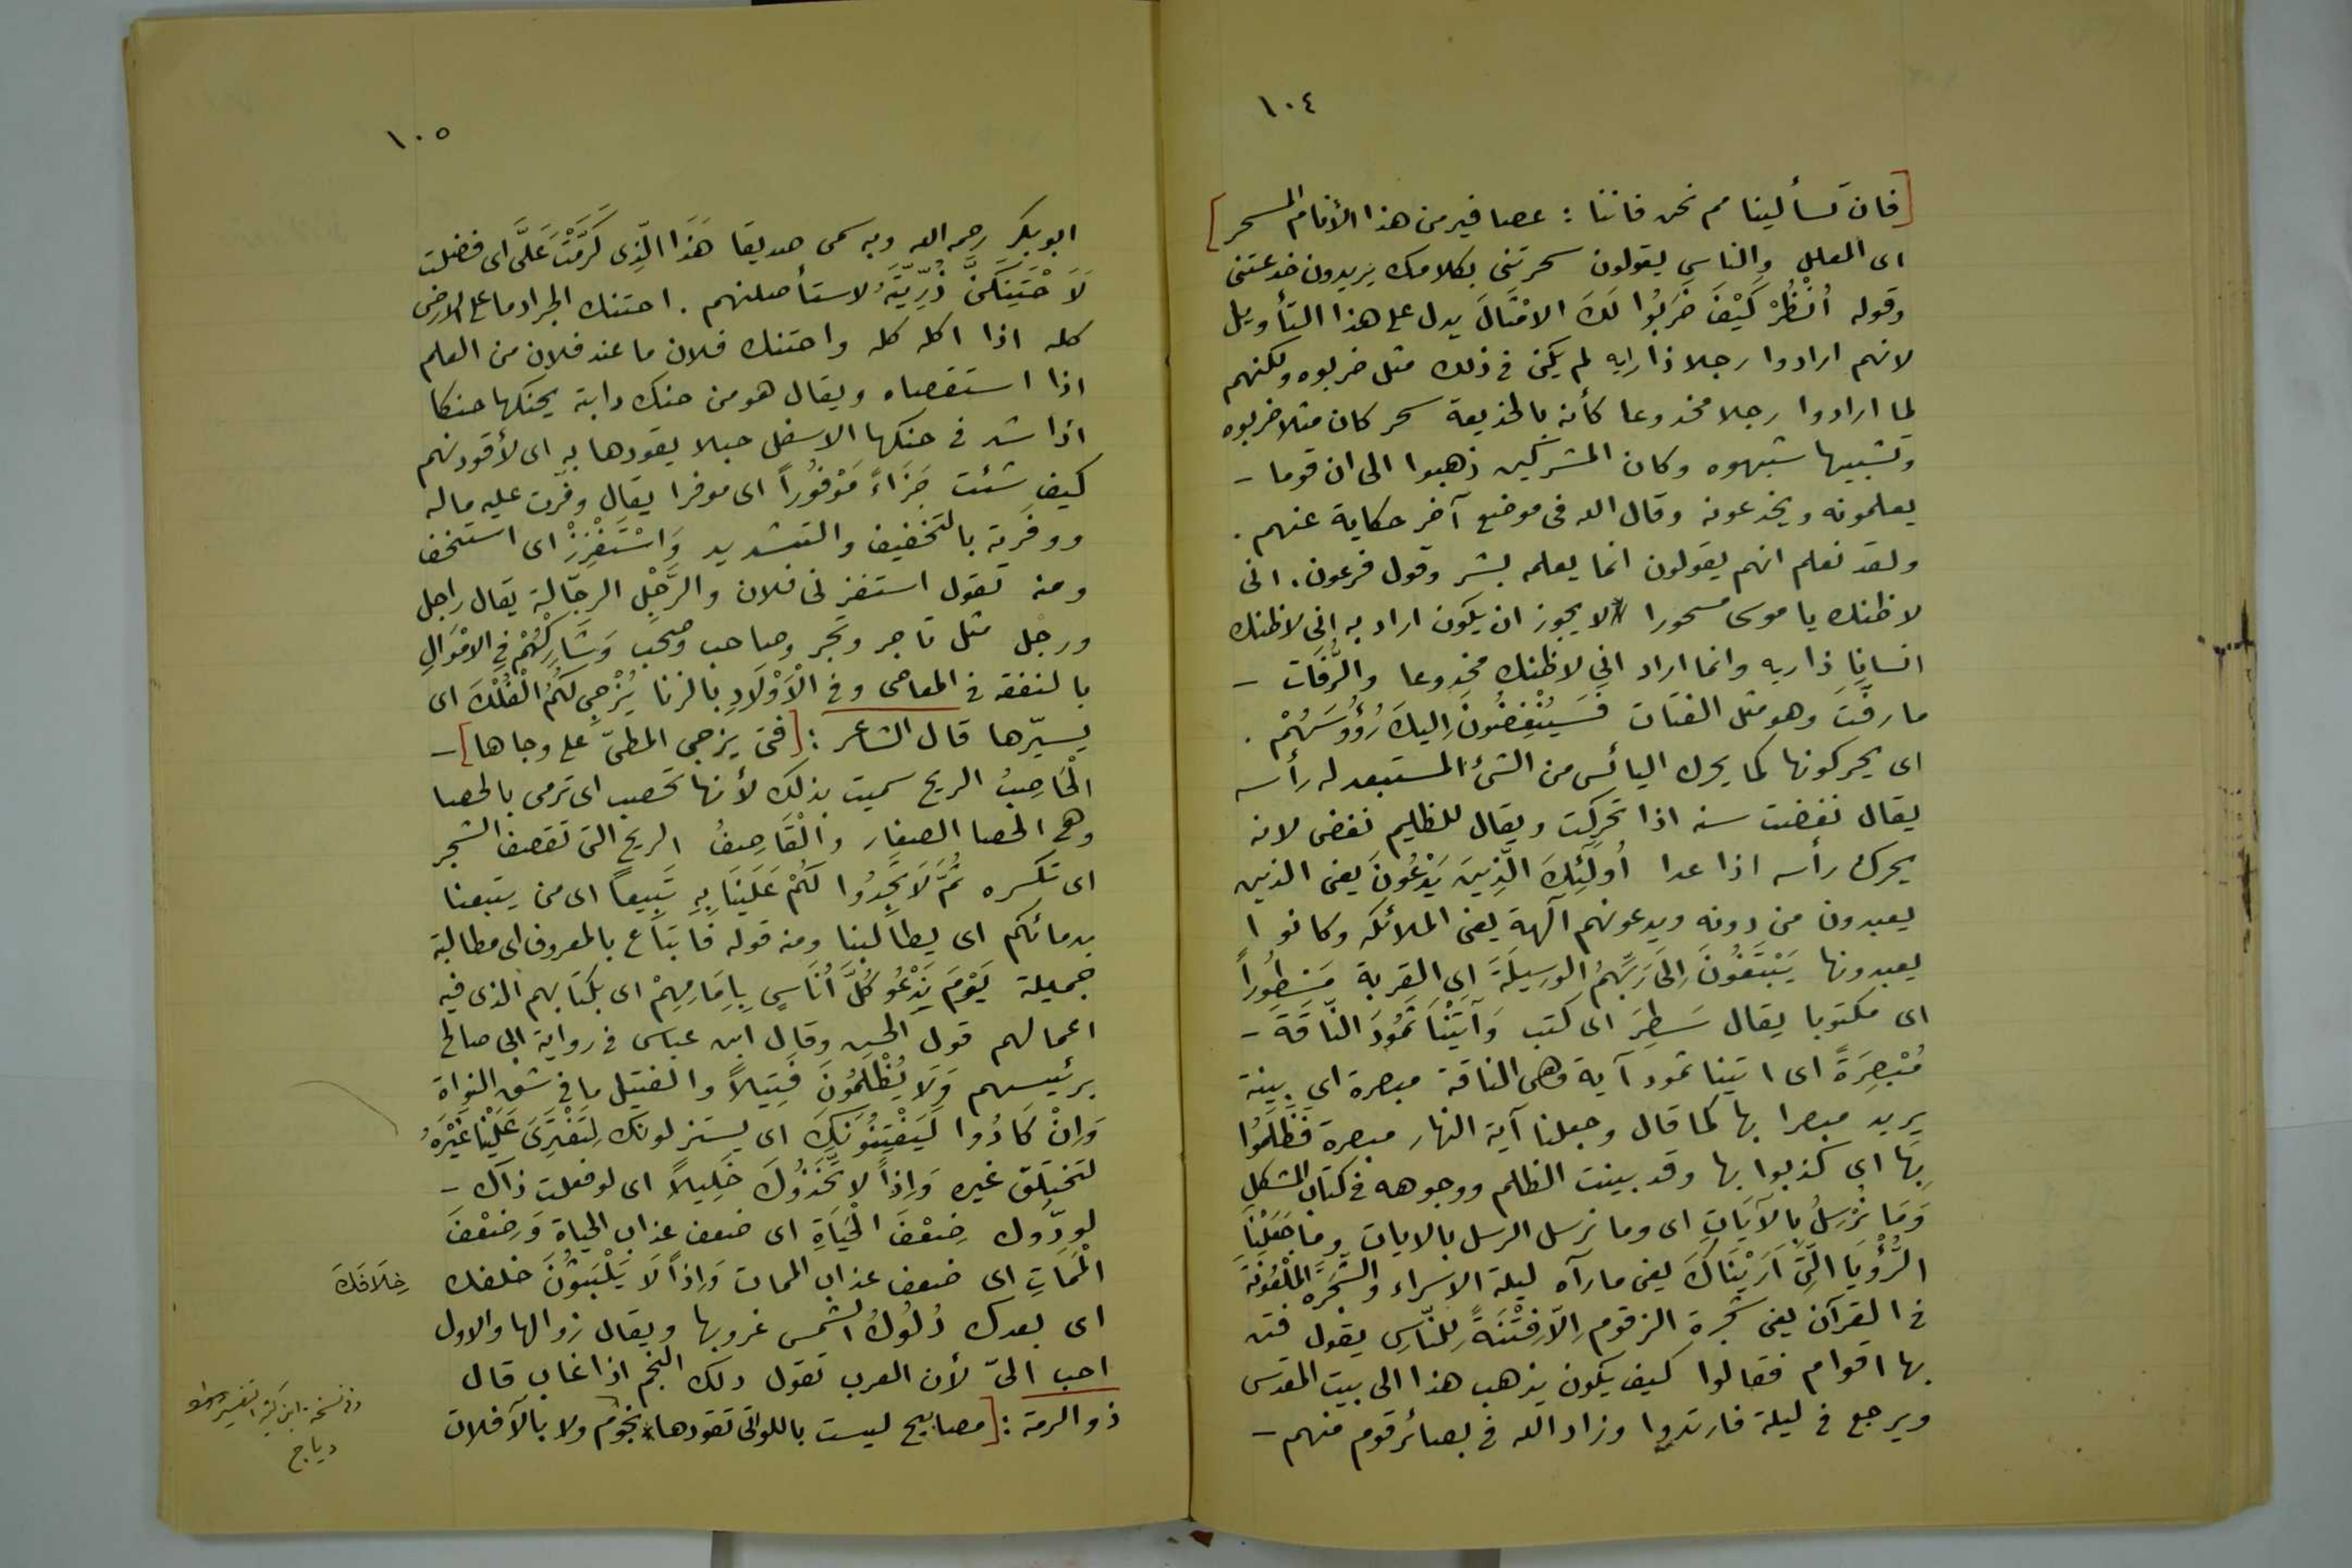 ١٠٤
[فان تسألينا مم نحن فاننا : عصافير من هذا الأنام المسحر]
اى المعلل والناس يقولون سحرتنى بكلامك يريدون خدعتنى
وقوله اُنْظُرْ كَيْفَ ضَرَبُوا لَكَ الامْثَالَ يدل على هذا التأويل
لانهم ارادوا رجلا ذا رايه لم يكن فى ذلك مثل ضربوه ولكنهم
لما ارادوا رجلا مخدوعا كأنه بالخديعة سحر كان مثلا ضربوه
وتشبيها شبهوه وكان المشركين ذهبوا الى ان قوما -
يعلمونه ويخدعونه وقال الله فى موضع آخر حكاية عنهم .
ولقد نعلم انهم يقولون انما يعلمه بشر وقول فرعون . انى
لاظنك يا موسى مسحورا لا يجوز ان يكون اراد به انى لاظنك
انسانا ذا ريه وانما اراد انى لاظنك مخدوعا والرُّفَات -
ما رفّتَ وهو مثل الفتات فَسَيُنْغِضُونَ اِليكَ رُؤُوسَهُمْ .
اى يحركونها كما يحرك اليائس من الشئ المستبعد له رأسه
يقال نغضت سنه اذا تحركت ويقال للظليم نغض لانه
يحرك رأسه اذا عدا اُولَئِكَ الَّذِينَ يَدْعُونَ يعنى الذين
يعبدون من دونه ويدعونهم آلهة يعنى الملائكه وكانوا
يعبدونها يَبْتَغُونَ اِلَى رَبِّهِمُ الوَسِيلَةَ اى القربة مَسْطُوراً
اى مكتوبا يقال سَطَرَ اى كتب وَآتَيْنَا ثَمُودَ النَّاقَةَ -
مُبْصِرَةً اى اتينا ثمود آية وهى الناقة مبصرة اى بينة
يريد مبصرا بها كما قال وجعلنا آية النهار مبصرة فَظَلَمُوا
بِهَا اى كذبوا بها وقد بينت الظلم ووجوهه فى كتاب المشكل
وَمَا نُرْسِلُ بِالآيَاتِ اى وما نرسل الرسل بالايات وما جَعَلْنَا
الرُّؤْيَا الَّتِى اَرَيْنَاكَ يعنى مارآه ليلة الاسراء والشَّجَرَه المَلْعُونَة
فى القرآن يعنى شجرة الزقوم اِلاَّ فِتْنَةً لِلنَّاسِ يقول فتن
بها اقوام فقالوا كيف يكون يذهب هذا الى بيت المقدس
ويرجع فى ليلة فارتدوا وزاد الله فى بصائر قوم منهم -
١٠٥
ابوبكر رحمه الله وبه سمى صديقا هَذَا الَّذِى كَرَّمْتَ عَلَىَّ اى فضلت
لَاَحْتَنِكَنَّ ذُرِّيَّتَهُ لاستأصلنهم . احتنك الجراد ما على الارض
كله اذا اكله كله واحتنك فلان ما عند فلان من العلم
اذا استقصاه ويقال هو من حنك دابته يحنكها حنكا
اذا شد فى حنكها الاسفل حبلا يقودها به اى لأقودنهم
كيف شئت جَزَاءً مَوْفُوراً اى موفرا يقال وفرت عليه ماله
ووفرته بالتخفيف والتشديد وَاسْتَفْزِزْ اى استخف
ومنه تقول استفزنى فلان والرَّجْلِ الرجّالة يقال راجل
ورجل مثل تاجر وتجر وصاحب وصحب وَشَارِكْهُمْ فِى الامْوَالِ
بالنفقه فى المعاصى وفى الْاَوْلَادِ بالزنا يُزْجِى لَكُمُ الْفُلْكَ اى
يسيّرها قال الشاعر : [فتى يزجى المطىّ على وجاها] -
الْحَاصِبُ الريح سميت بذلك لأنها تحصب اى ترمى بالحصبا
وهى الحصا الصغار والْقَاصِفُ الريح التى تقصف الشجر
اى تكسره ثُمَّ لَا تَجِدُوا لَكُمْ عَلَيْنَا بِهِ تَبِيعاً اى من يتبعنا
بدمائكم اى يطالبنا ومنه قوله فاتباع بالمعروف اى مطالبة
جميلة يَوْمَ نَدْعُو كُلَّ اُنَاسٍ بِاِمَامِهِمْ اى بكتابهم الذى فيه
اعمالهم قول الحسن وقال ابن عباس فى رواية ابى صالح
برئيسهم وَلَا يُظْلَمُونَ فَتِيلاً والفتيل ما فى شق النواة
وَاِنْ كَادُوا لَيَفْتِنُونَكَ اى يستنزلونك لِتَفْتَرِىَ عَلَيْنَا غَيْرَهُ
لتختلق غيره وَاِذاً لاتَّخَذُوكَ خَلِيلاً اى لوفعلت ذاك -
لودّوك ضِعْفَ الْحَيَاةِ اى ضعف عذاب الحياة وَضِعْفَ
الْمَمَاتِ اى ضعف عذاب الممات وَاِذاً لَا يَلْبَثُونَ خلفك
خِلَافَكَ
اى بعدك دُلُوكُ الشمس غروبها ويقال زوالها والاول
احب الىّ لأن العرب تقول دلك النجم اذا غاب قال
ذو الرمة : [مصابيح ليست باللواتى تقودها نجوم ولا بالآفلات
وفى نسخة ابن كثير
دياج